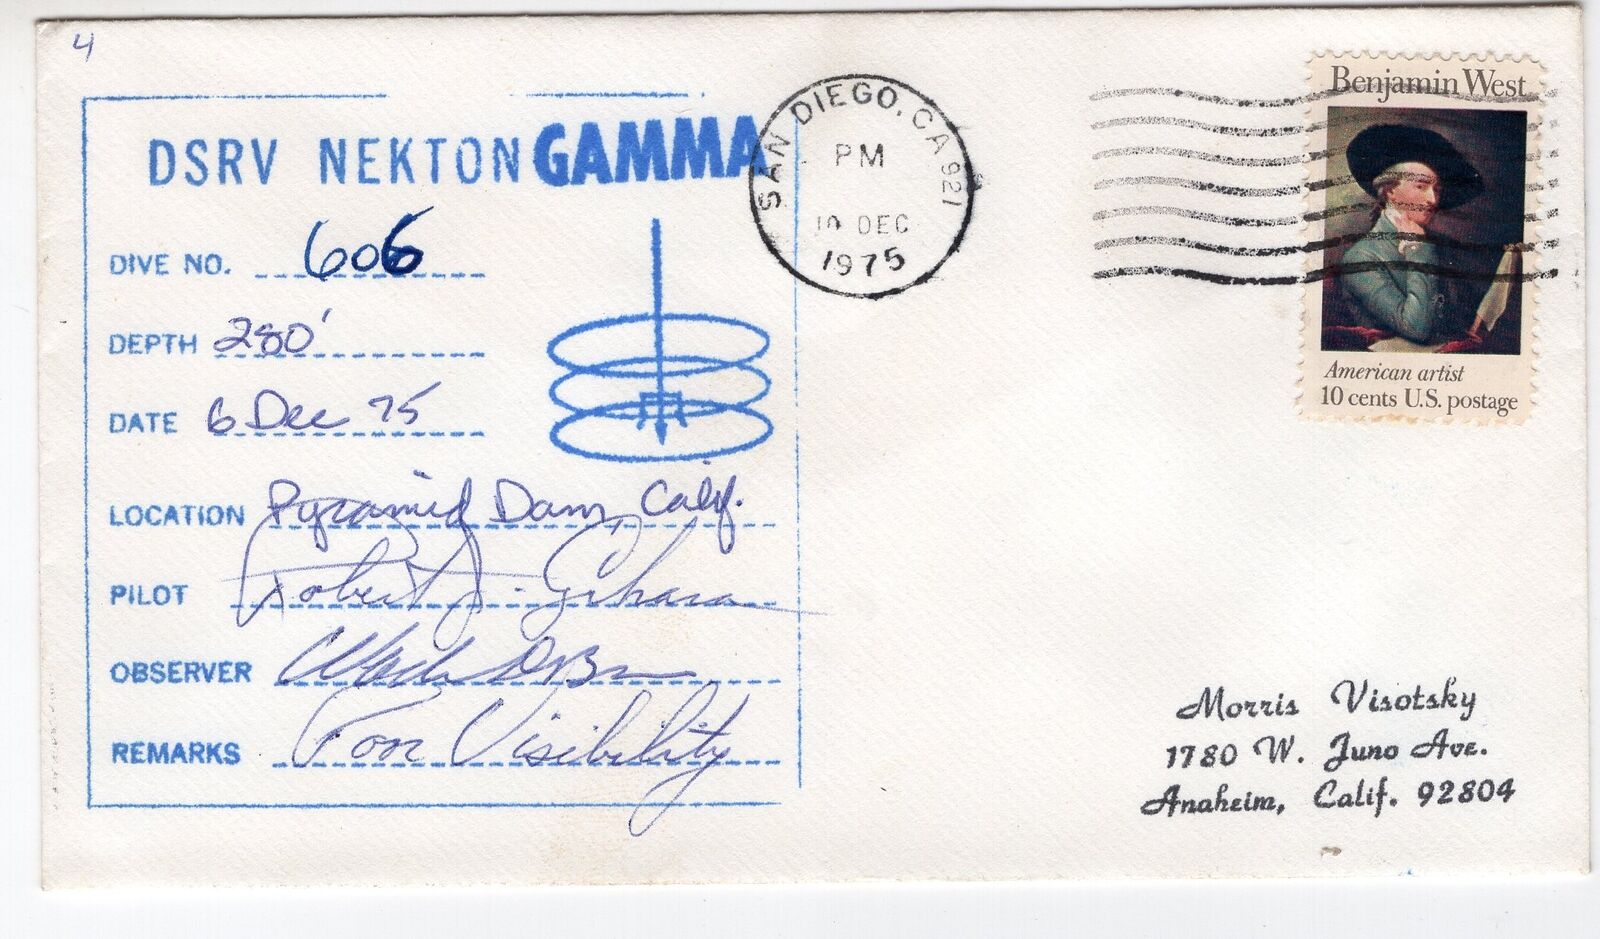 4
DSRV NEKTON GAMMA
DIVE NO. 606
DEPTH 280'
DATE 6 Dec 75
LOCATION Pyramid Dam, Calif.
PILOT Robert J.
OBSERVER
REMARKS Poor Visibility
SAN DIEGO, CA 921
PM
10 DEC
1975
Benjamin West
American artist
10 cents U.S. postage
Morris Visotsky
1780 W. Juno Ave.
Anaheim, Calif. 92804